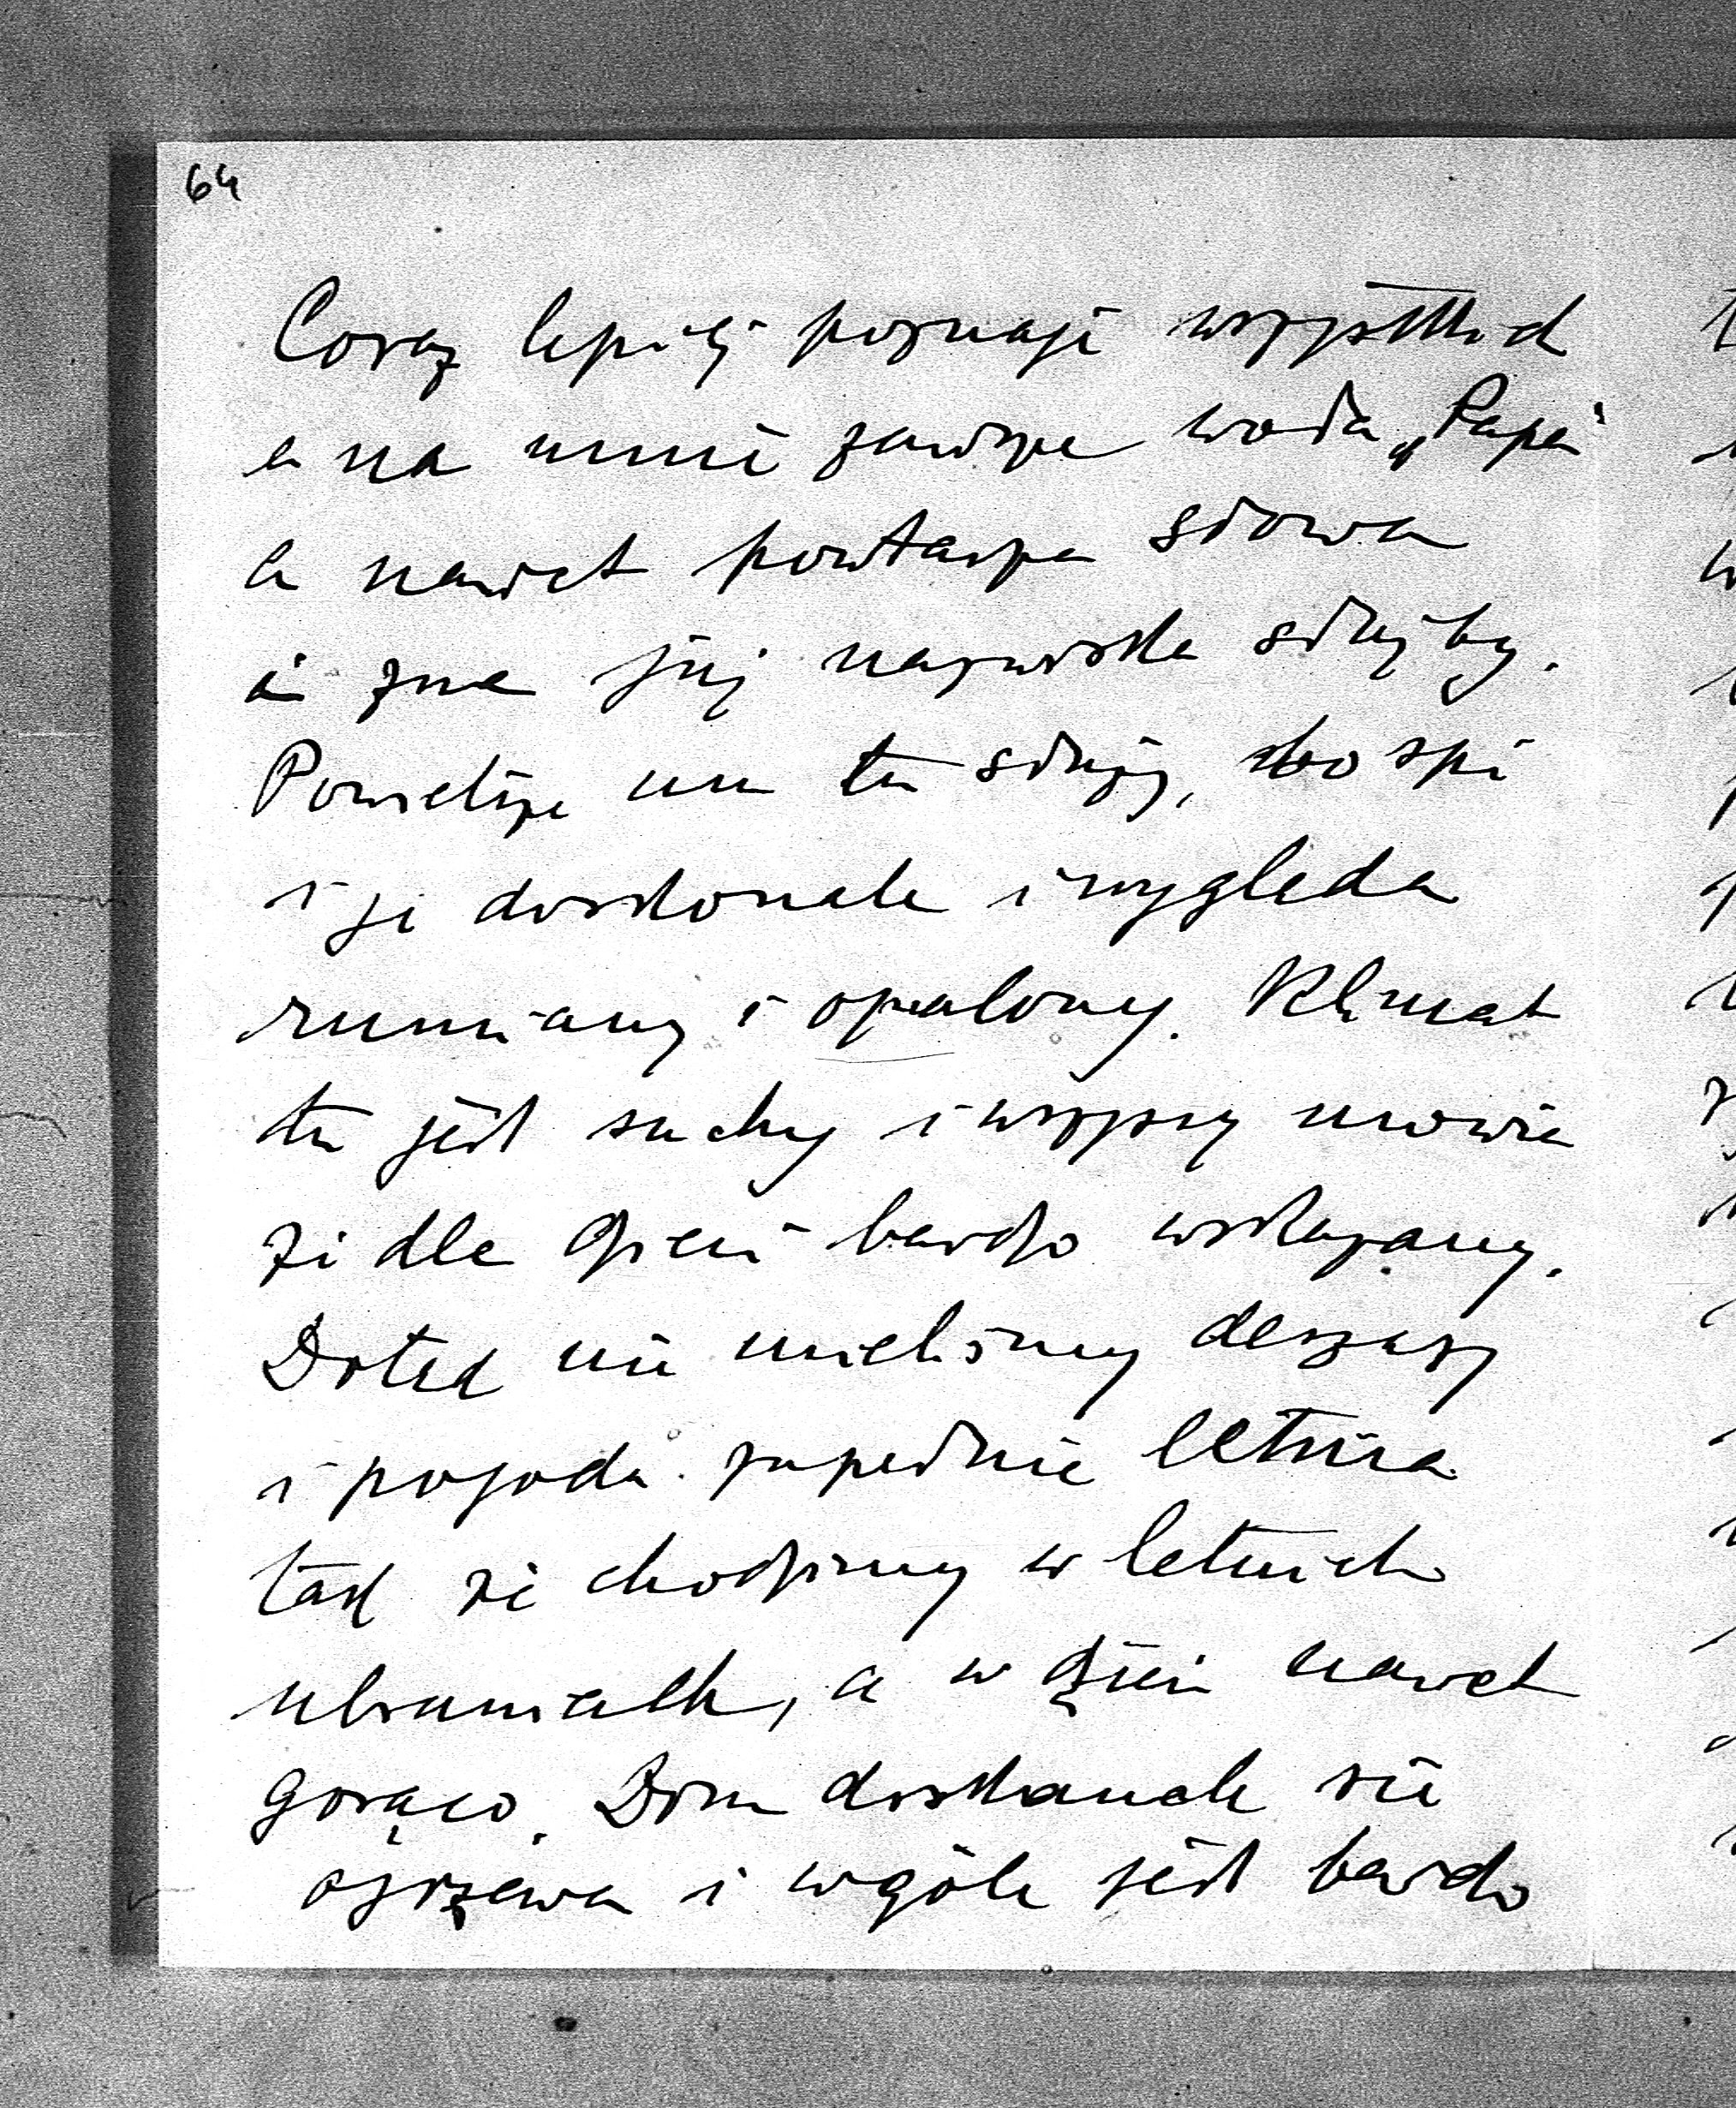 64
Coraz lepiej poznaje wszystkich
a na mnie zawsze woła „Papa"
a nawet powtarza słowa
i zna już nazwiska służby.
Powietrze mu tu służy, bo śpi
i je doskonale i wygląda
rumiany i opalony. Klimat
tu jest suchy i wszyscy mówią
że dla dzieci bardzo wskazany.
Dotąd nie mieliśmy deszczu
i pogoda zupełnie letnia
tak że chodzimy w letnich
ubraniach, a w dzień nawet
gorąco. Dom doskonale się
ogrzewa i wgóle jest bardzo